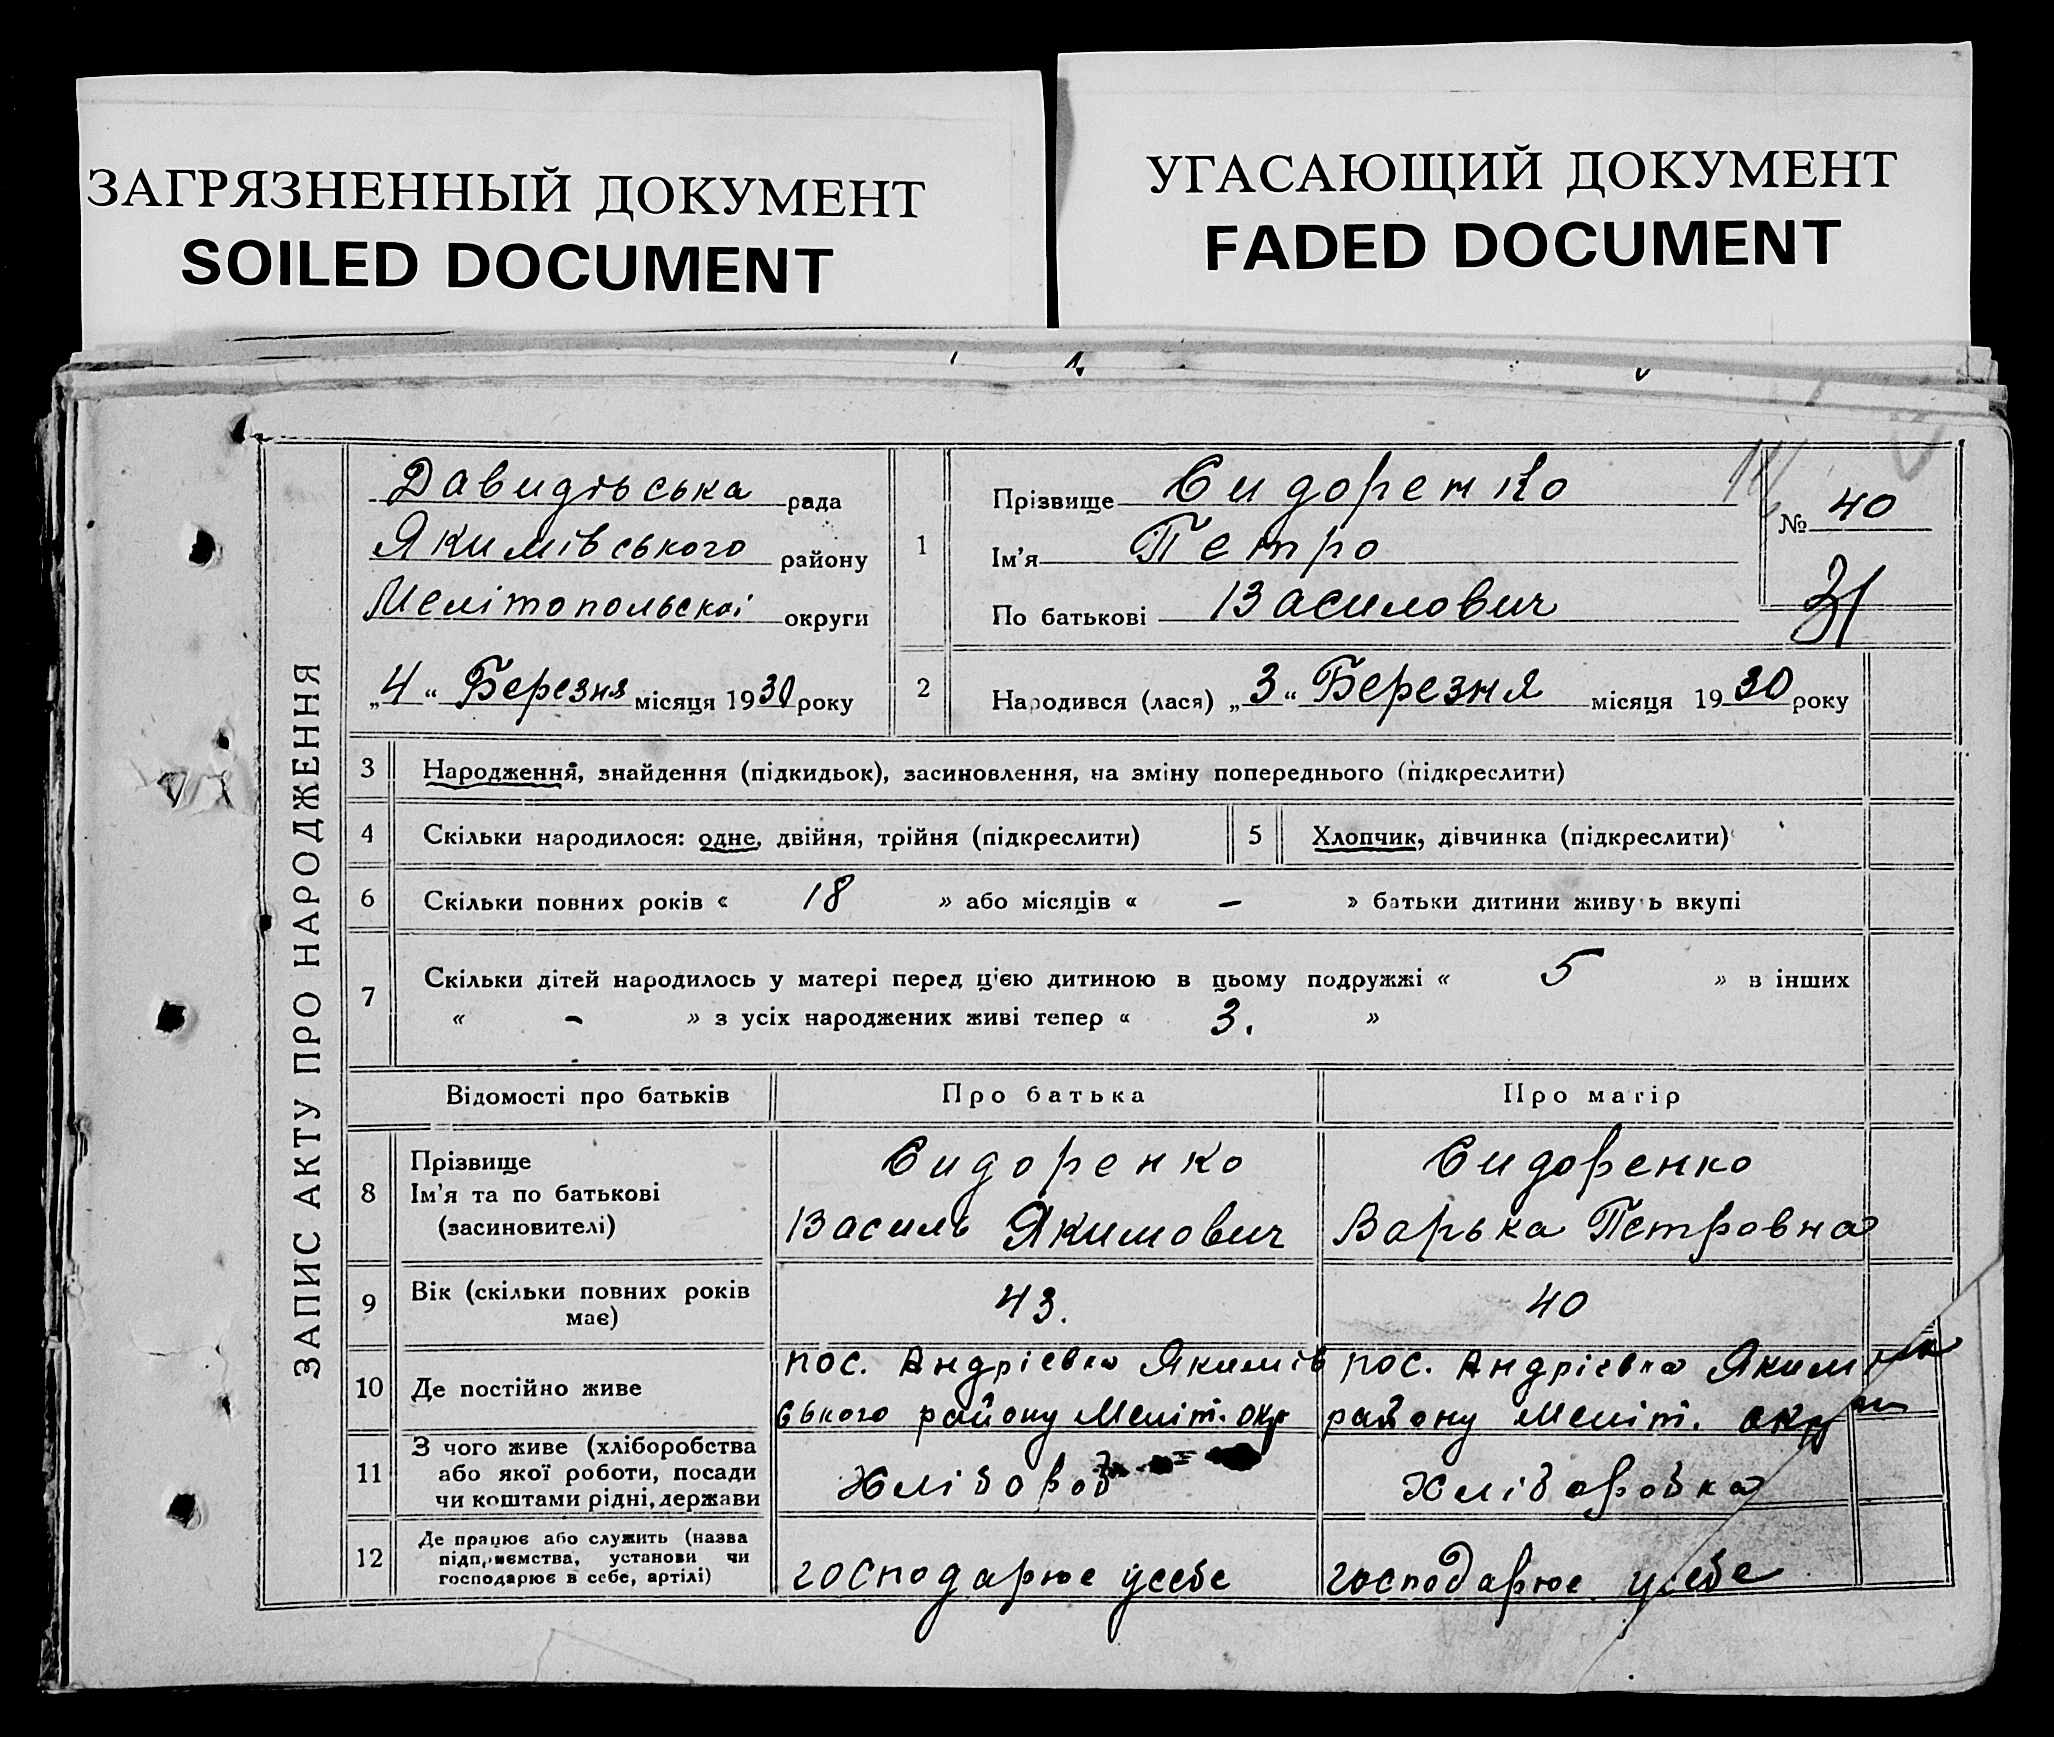 ЗАГРЯЗНЕННЫЙ ДОКУМЕНТ
SOILED DOCUMENT
УГАСАЮЩИЙ ДОКУМЕНТ
FADED DOCUMENT
ЗАПИС АКТУ ПРО НАРОДЖЕННЯ
Давидівська рада
Якимівського району
Мелітопольскої округи
„4“ Березня місяця 1930 року
1
Прізвище Сидоренко
Ім'я Петро
По батькові Василович
№ 40
31
2
Народився (лася) „3“ Березня місяця 1930 року
3 Народження, знайдення (підкидьок), засиновлення, на зміну попереднього (підкреслити)
4 Скільки народилося: одне, двійня, трійня (підкреслити) 5 Хлопчик, дівчинка (підкреслити)
6 Скільки повних років « 18 » або місяців « – » батьки дитини живуть вкупі
7 Скільки дітей народилось у матері перед цією дитиною в цьому подружжі « 5 » в інших
« – » з усіх народжених живі тепер « 3. »
Відомості про батьків Про батька Про матір
8 Прізвище
Ім'я та по батькові
(засиновителі)
Сидоренко
Василь Якимович
Сидоренко
Варька Петровна
9 Вік (скільки повних років
має)
43.
40
10 Де постійно живе
пос. Андрієвка Якимів
ського району Меліт. окр
пос. Андрієвка Яким
району Меліт.
11 З чого живе (хліборобства
або якої роботи, посади
чи коштами рідні, держави
Хлібороб
Хліборобка
12 Де працює або служить (назва
підприємства, установи чи
господарює в себе, артілі)
господарює усебе
господарює усебе